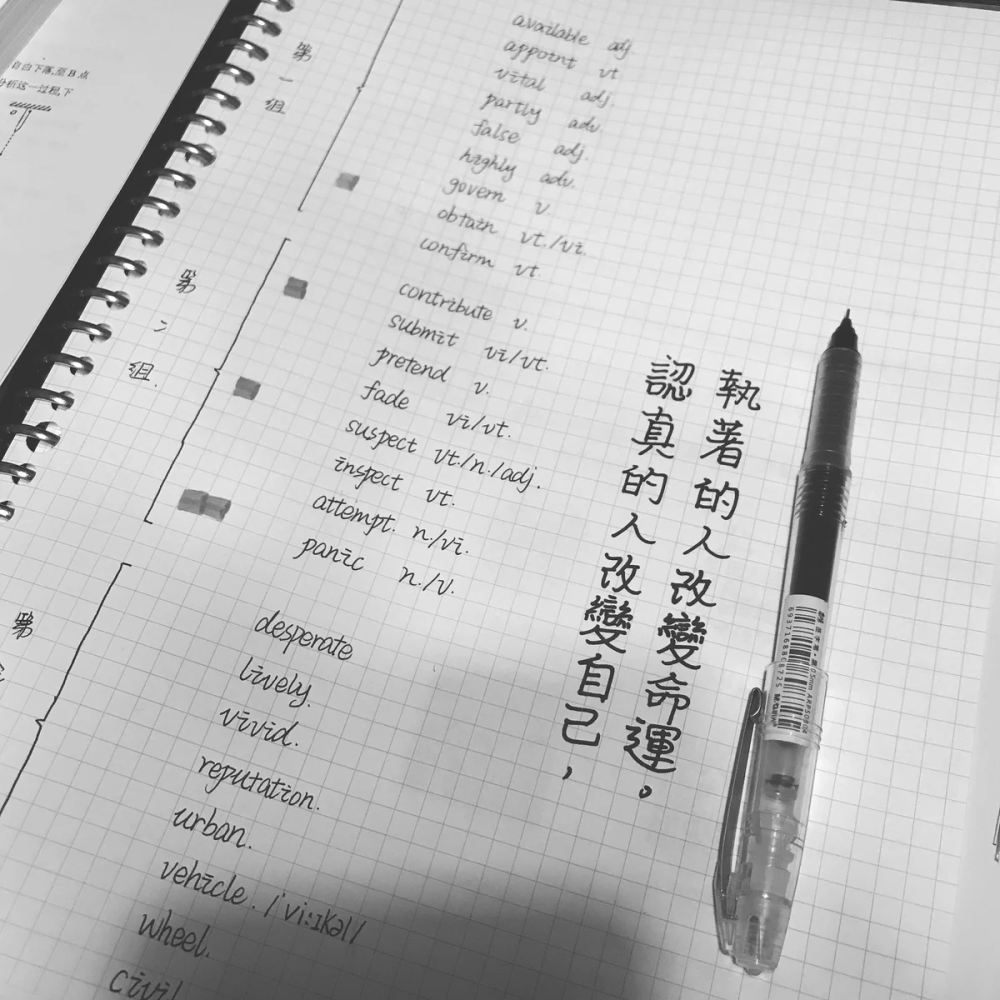 自由下落,至B点
分析这一过程,下
第一组
available adj
appoint vt
vital adj.
partly adv.
false adj.
highly adv.
govern v.
obtain vt./vi.
confirm vt.
第二组.
contribute v.
submit vi/vt.
pretend v.
fade vi/vt.
suspect vt./n./adj.
inspect vt.
attempt. n./vi.
panic n./v.
第
desperate
lively.
vivid.
reputation.
urban.
vehicle. /'vi:ɪkəl/
wheel.
civil
執著的人改變命運。
認真的人改變自己,